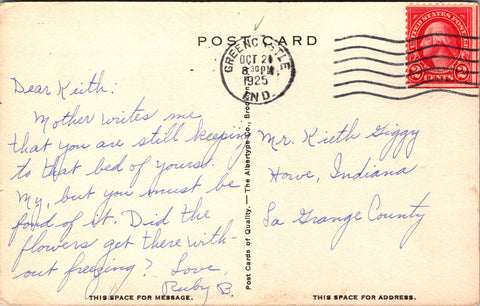 POST CARD
GREENCASTLE
OCT 21
8:30 PM
1925
IND.
UNITED STATES POSTAGE
2 CENTS 2
Dear Keith:
Mother writes me
that you are still keeping
to that bed of yours.
My, but you must be
fond of it. Did the
flowers get there with-
out freezing? Love,
Ruby B.
Post Cards of Quality. — The Albertype Co., Brooklyn
Mr. Kieth Giggy
Howe, Indiana
La Grange County
THIS SPACE FOR MESSAGE.
THIS SPACE FOR ADDRESS.